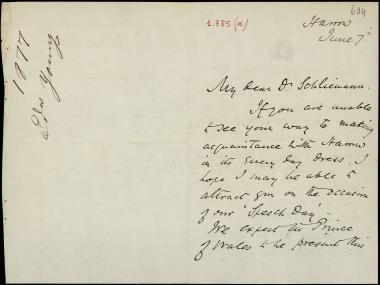 1877
Edw Young
1.385 (a)
604
Harrow
June 7
My dear Dr Schliemann.
If you are unable
to see your way to making
acquaintance with Harrow
in its every day dress, I
hope I may be able to
attract you on the occasion
of our 'Speech Day' -
We expect the Prince
of Wales to be present this